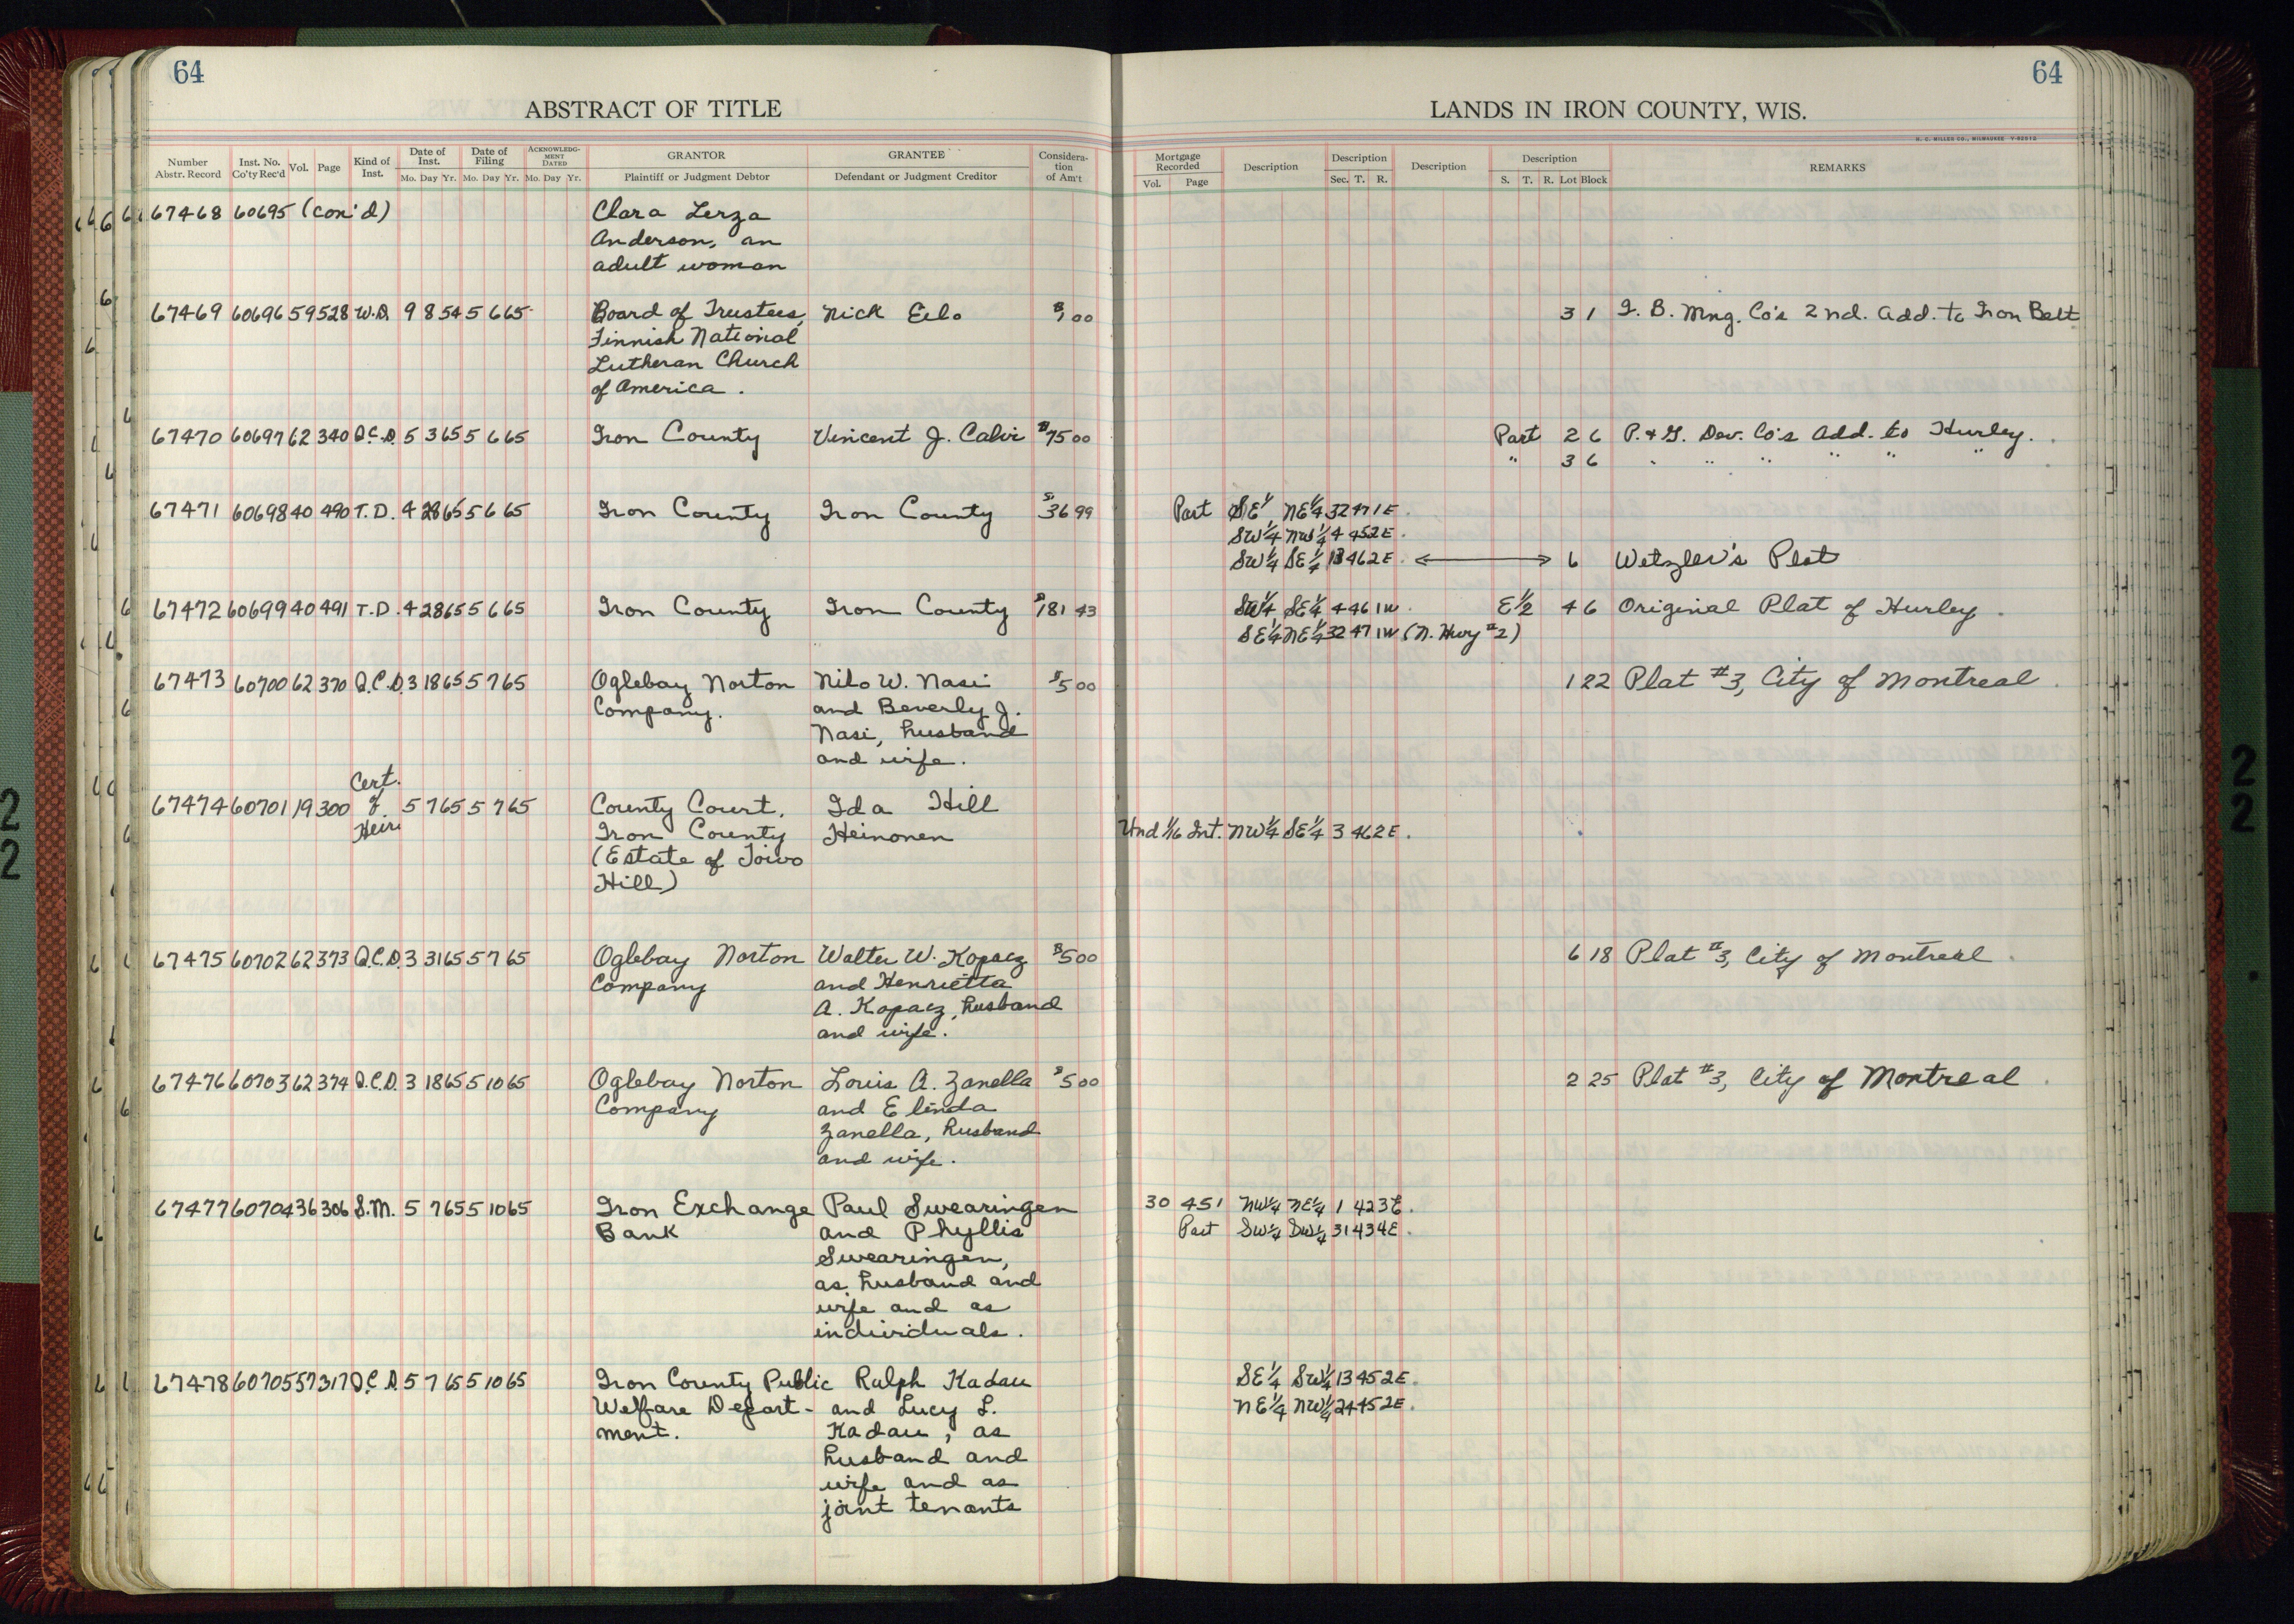 64
ABSTRACT OF TITLE
Number Abstr. Record Inst. No. Co'ty Rec'd Vol. Page Kind of Inst. Date of Inst. Mo. Day Yr. Date of Filing Mo. Day Yr. ACKNOWLEDGMENT DATED Mo. Day Yr. GRANTOR Plaintiff or Judgment Debtor GRANTEE Defendant or Judgment Creditor Consideration of Am't
67468 60695 (con'd) Clara Lerza
Anderson, an
adult woman
67469 60696 59 528 W.D. 9 8 54 5 6 65 Board of Trustees, Nick Eilo $1 00
Finnish National
Lutheran Church
of America.
67470 60697 62 340 Q.C.D. 5 3 65 5 6 65 Iron County Vincent J. Calvi $75 00
67471 60698 40 490 T.D. 4 28 65 5 6 65 Iron County Iron County $36 99
67472 60699 40 491 T.D. 4 28 65 5 6 65 Iron County Iron County $181 43
67473 60700 62 370 Q.C.D. 3 18 65 5 7 65 Oglebay Norton Nilo W. Nasi $5 00
Company. and Beverly J.
Nasi, husband
and wife.
Cert.
67474 60701 19 300 of 5 7 65 5 7 65 County Court, Ida Hill
Heir Iron County Heinonen
(Estate of Toivo
Hill)
67475 60702 62 373 Q.C.D. 3 31 65 5 7 65 Oglebay Norton Walter W. Kopacz $5 00
Company and Henrietta
A. Kopacz, husband
and wife.
67476 60703 62 374 Q.C.D. 3 18 65 5 10 65 Oglebay Norton Louis A. Zanella $5 00
Company and Elinda
Zanella, husband
and wife.
67477 60704 36 306 S.M. 5 7 65 5 10 65 Iron Exchange Paul Swearingen
Bank and Phyllis
Swearingen,
as husband and
wife and as
individuals.
67478 60705 57 317 Q.C.D. 5 7 65 5 10 65 Iron County Public Ralph Kadau
Welfare Depart- and Lucy L.
ment. Kadau, as
husband and
wife and as
joint tenants
64
LANDS IN IRON COUNTY, WIS.
H. C. MILLER CO., MILWAUKEE
Mortgage Recorded Vol. Page Description Description Sec. T. R. Description Description S. T. R. Lot Block REMARKS
3 1 I. B. Mng. Co's 2nd. Add. to Iron Belt
Part 2 6 P. & G. Dev. Co's Add. to Hurley.
" 3 6 " " " " " "
Part SE¼ NE¼ 32 47 1E.
SW¼ NW¼ 4 45 2E.
SW¼ SE¼ 13 46 2E. ⟷ 6 Wetzler's Plat
SW¼ SE¼ 4 46 1W. E½ 4 6 Original Plat of Hurley.
SE¼ NE¼ 32 47 1W (N. Hwy #2)
1 22 Plat #3, City of Montreal.
Und 1/16 Int. NW¼ SE¼ 3 46 2E.
6 18 Plat #3, City of Montreal.
2 25 Plat #3, City of Montreal.
30 451 NW¼ NE¼ 1 42 3E.
Part SW¼ SW¼ 31 43 4E.
SE¼ SW¼ 13 45 2E.
NE¼ NW¼ 24 45 2E.
2
2
2
2